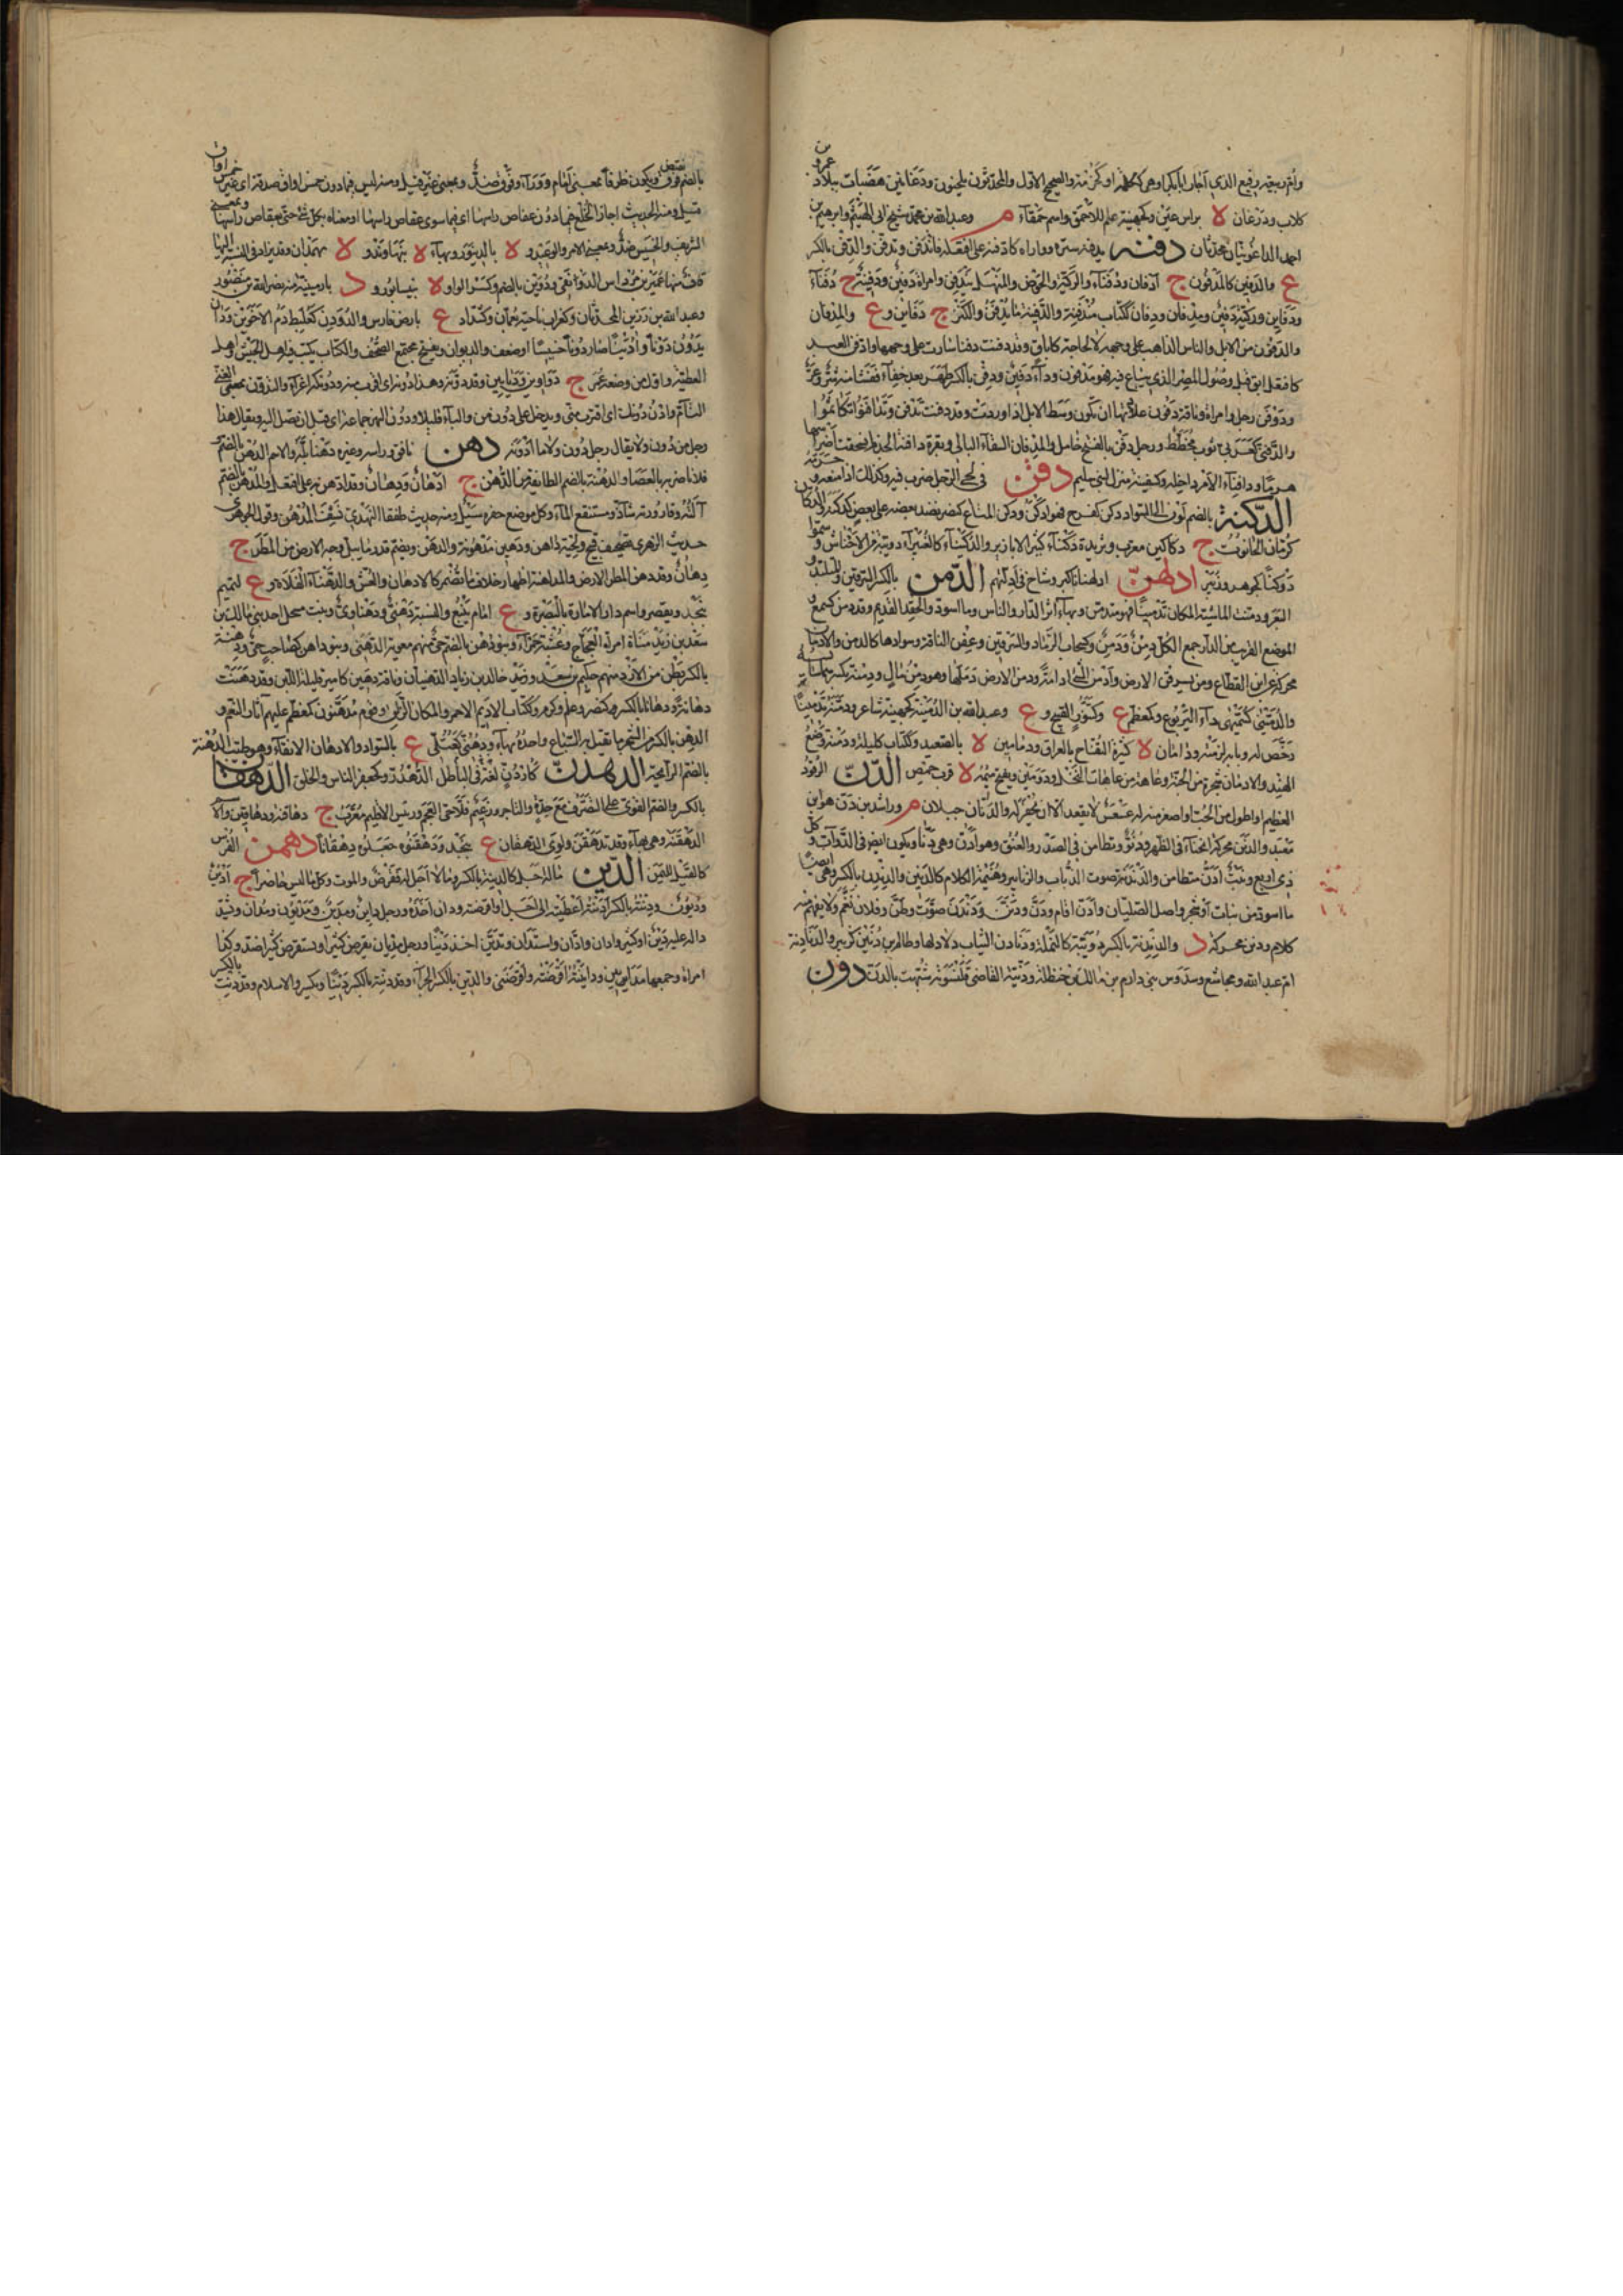 وام ربيعة رفيع الذي اجار ابا بكر او هي كحمزة او كمزنة والصحيح الاول والمحدثون يلحنون ودغانين هضبات ببلاد عمرو بن
كلاب ودزغان لا براس عين وكجهينة علم للاحمق واسم حمقاء م وعبد الله بن محمد شيخ ابي الهيثم وابرهيم بن
احمد الداغونيان محدثان دفنه يدفنه ستره وواراه كادفنه على افتعله فاندفن وتدفن والدفن بالكسر
ع والدفين كالمدفون ج ادفان ودفناء والركية والحوض والمنهل يندفن وامراة دفين ودفينة ج دفناء
ودفاين وركية دفين ومدفان ودفان ككتاب مندفنة والدفينة ما يدفن والكنز ج دفاين وع والمدفان
والدفون من الابل والناس الذاهب على وجهه لا لحاجة كالابق وقد دفنت دفنا سارت على وجهها وادفن العبد
كافتعل ابق قبل وصول المصر الذي يباع فيه فهو مدفون وداء دفين ودفن بالكسر ظهر بعد خفاء ففشا منه شر وعر
ودوفن رجل وامراة وناقة دفون عادتها ان تكون وسط الابل اذا وردت وقد دفنت تدفن وتدافنوا تكاتموا
والدفني كعربي ثوب مخطط ورجل دفن بالفتح خامل والمدفان السقاء البالي وبقرة دافنة الجذم انسحقت اضراسها
هرما ودافناء الامر داخله وكسفينة منزل لبني سليم دقن في لحي الرجل ضرب فيه وكذلك اذا منعه وحرمه
الدكنة بالضم لون الى السواد دكن كفرح فهو ادكن ودكن المتاع كنصر نضد بعضه على بعض كدكنه والدكان
كرمان الحانوت ج دكاكين معرب وثريدة دكناء كثيرة الابازير والدكيناء كالغبيراء دويبة من الاحناش وسموا
دوكنا كجوهر وزبير ادلهن ادلهنانا كبر وشاخ في ادلهم الدمن بالكسر السرقين المتلبد و
البعر ودمنت الماشية المكان تدمينا فهو متدمن وبهاء اثار الدار والناس وما سود والحقد القديم وقد دمن كسمع و
الموضع القريب من الدار جمع الكل دمن ودمن وكسحاب الرماد والسرقين وعفن النافة وسوادها كالدمن والادمان
محركة عن ابن القطاع ومن يسرقن الارض وادمن الشيء ادامه ودمن الارض دملها وهو دمن مال ودمنته بكسرهما
والدمني كمهى داء اليربوع وكمعظم ع وكتنور القبيح وع وعبد الله بن الدمينة كجهينة شاعر ودمنه تدمينا
رخص له وبابه لزمه ودامان لا كثيرة التفاح بالعراق ودمامين لا بالصعيد وككتاب كليلة ودمنة وضع
الهند والادمان شجرة من الجنبة وعاهة من عاهات النخل ودومين وتفتح ميمه لا قرب حمص الدن الراقود
العظيم او اطول من الحب او اصغر منه له عسعس لا يقعد الا ان يحفر له والدنان جبلان م وراشد بن دن هو ابن
معبد والدنن محركة انحناء في الظهر ودنو وتطامن في الصدر والعنق وهو ادن وهي دنا ويكون ايضا في الدواب وكل
ذي اربع وبيت ادن متطامن والدندنة صوت الذباب والزنابير وهينمة الكلام كالدنين والدندن بالكسر وهي ايضا
ما اسود من نبات او شجر واصل الصليان وادن اقام ودن ودنن ودندن صوت وطن وفلان نغم ولا يفهم منه
كلام ودنن محركة د والدندنة بالكسر دويبة كالنملة ودنادن الثياب ذلاذلها وطالوت بن دنين كزبير والدنادنة
ام عبد الله ومجاشع وسدوس بني دارم بن مالك بن حنظلة ودنية القاضي قلنسوته شبهت بالدن دون
بالضم نقيض فوق ويكون ظرفا بمعنى امام ووراء وفوق ضد وبمعنى غير قيل ومنه ليس فيما دون خمس اواق صدقة اي غير خمس اواق
قيل ومنه الحديث اجاز الخلع فيما دون عقاص راسها اي فيما سوى عقاص راسها او معناه بكل شيء حتى بعقاص راسها وبمعنى
الشريف والخسيس ضد وبمعنى الامر والوعيد و لا بالدينور وبهاء لا بنهاوند و لا بهمذان وقد يزاد في النسب اليها
قاف منها عمير بن مرداس الدونقي ودوين بالضم وكسر الواو لا بنيسابور و د بارمينية منه نصر الله بن منصور
وعبد الله بن رزين المحدثان وكغراب ناحية بعمان وكشداد ع بارض فارس والدودن كعلبط دم الاخوين ودان
يدون دونا وادين صار دونا خسيسا او ضعف والديوان ويفتح مجتمع الصحف والكتاب يكتب فيه اهل الجيش واهل
العطية واول من وضعه عمر ج دواوين ودياوين وقد دونه وهذا دونه اي اقرب منه ودونكه اغراء والتدون بمعنى الغنى
التام وادن دونك اي اقترب مني ويدخل على دون من والباء قليلا ودون النهر جماعة اي قبل ان تصل اليه ويقال هذا
رجل من دون ولا يقال رجل دون ولا ما ادونه دهن نافق وراسه وغيره دهنا بله والاسم الدهن بالضم
فلانا ضربه بالعصا والدهنة بالضم الطائفة من الدهن ج ادهان ودهان وقد ادهن به على افتعل والمدهن بالضم
الته وقارورته شاذ ومستنقع الماء وكل موضع حفره سيل ومنه حديث طهفة النهدي نشف المدهن وقول الجوهري
حديث الزهري تصحيف قبيح ولحية داهن ودهين مدهونة والدهن ويضم قدر ما يبل وجه الارض من المطر ج
دهان وقد دهن المطر الارض والمداهنة اظهار خلاف ما تضمر كالادهان والغش والدهناء الفلاة وع لتميم
بنجد ويقصر واسم دار الامارة بالبصرة و ع امام ينبع والنسبة دهني ودهناوي وبنت مسحل احد بني مالك بن
سعد بن زيد مناة امراة العجاج وعشبة حمراء وبنو دهن بالضم حي منهم معوية الدهني وبنو داهن كصاحب حي ودهنة
بالكسر بطن من الازد منهم حكيم بن سعد وزيد خالد بن زياد الدهنيان وناقة دهين كامير قليلة اللبن وقد دهنت
دهانة ودهانا بالكسر وكنصر وعلم وكرم وككتاب الاديم الاحمر والمكان الزلق وقوم مدهنون كمعظم عليهم اثار النعم و
الدهن بالكسر من الشجر ما يقتل به السباع واحدة بهاء ودهنى كعتلى ع بالسواد والادهان الابقاء وهو طيب الدهنة
بالضم الرائحة الدهدن كاردن لغة في الباطل الدهدر وكجعفر الناس والخلق الدهقان
بالكسر والضم القوي على التصرف مع حدة والتاجر وزعيم فلاحي العجم ورئيس الاقليم معرب ج دهاقنة ودهاقين والاسم
الدهقنة وهي بهاء وقد تدهقن ولوى الدهقان ع بنجد ودهقنوه جعلوه دهقانا دهمن الفرس
كالقيل لليمن الدين ماله اجل كالدينة بالكسر وما لا اجل له فقرض والموت وكل ما ليس حاضرا ج ادين
وديون ودنته بالكسر وادنته اعطيته الى اجل واقرضته ودان اخذه ورجل داين ومدين ومديون ومدان وتشدد
داله عليه دين او كثير وادان وادّان واستدان وتدين اخذ دينا ورجل مديان يقرض كثيرا ويستقرض كثيرا ضد وكذا
امراة وجمعهما مدايين وداينته اقرضته واقرضني والدين بالكسر الجزاء وقد دنته بالكسر دينا ويكسر والاسلام وقد دنت بالكسر